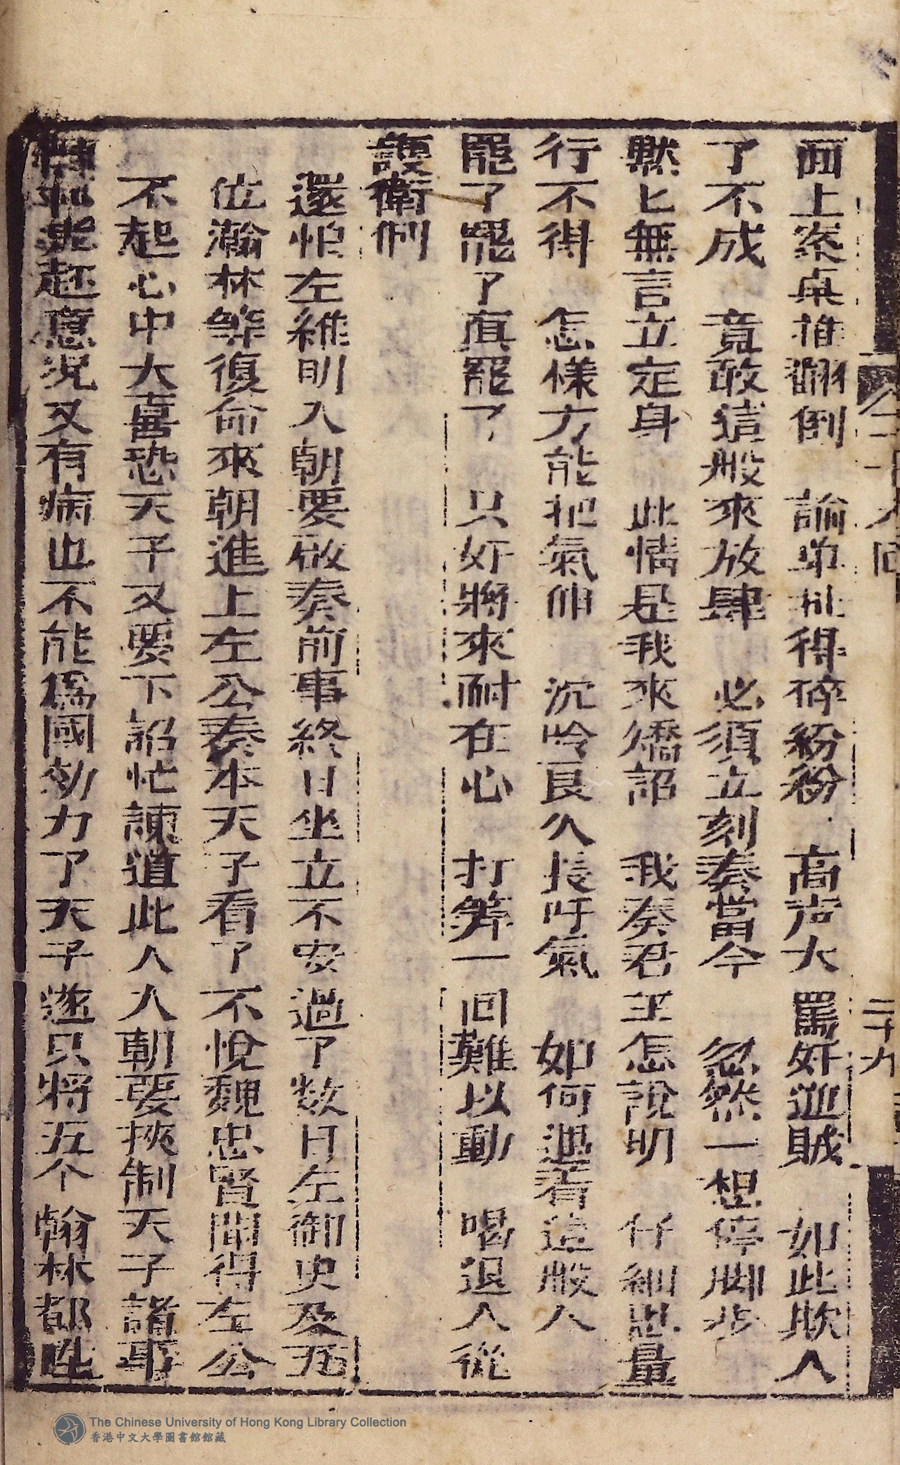 面上案桌推翻倒　諭单扯得碎紛紛　高声大罵奸逆賊　如此欺人
了不成　竟敢這般來放肆　必須立刻奏當今　忽然一想停脚步
默匕無言立定身　此情是我來矯詔　我奏君王怎說明　仔細思量
行不得　怎樣方能把氣伸　沉吟良久長吁氣　如何遇着這般人
罷了罷了真罷了　只好將來耐在心　打筭一回難以動　喝退人從
護衛們
還怕左維明入朝要啟奏前事終日坐立不安過了数日左御史及五
位瀚林等復命來朝進上左公奏本天子看了不悅魏忠賢聞得左公
不起心中大喜恐天子又要下詔忙諫道此人入朝要挾制天子諸事
起意况又有病也不能爲國効力了天子遂只將五个翰林都陞
二十九回
二十九
The Chinese University of Hong Kong Library Collection
香港中文大學圖書館館藏